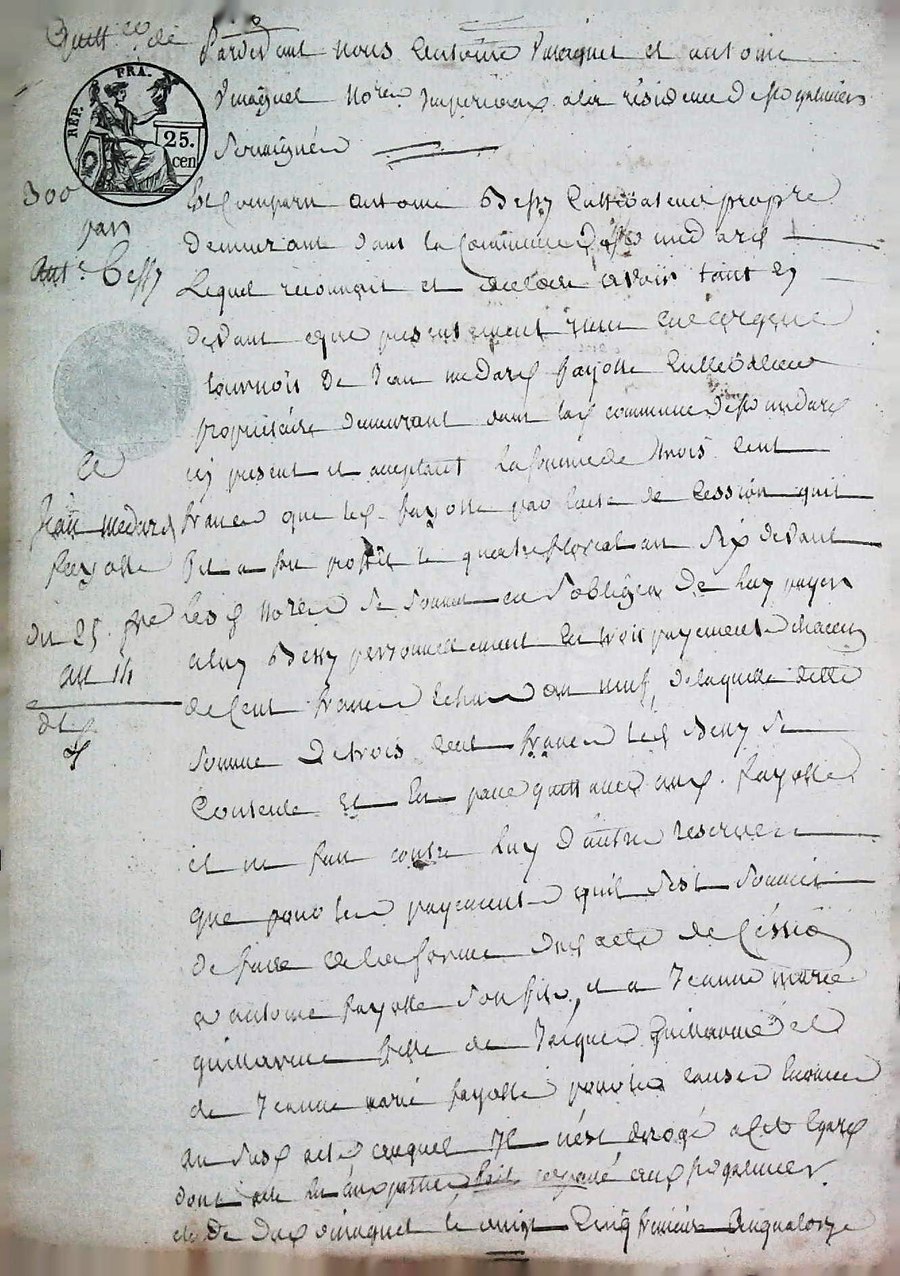 Quitt.ce de
300
par
Ant.e Bessy
a
Jean medard
fayolle
du 25 f.re
an 14
REP. FRA.
25.
cen
Pardevant nous antoine et antoine
No.res imperiaux a la résidence de
Soussignés
Est Comparu antoine Bessy Cultivateur propre
Demeurant dans la Commune de St medard
Lequel reconnoit et declare avoir tant cy
devant que presentement reçu en argent
tournois de Jean medard fayolle Cultivateur
propriétaire demeurant dans lad commune de St medard
icy present et acceptant la somme de trois Cent
francs que led. fayolle par l'acte de Cession quil
fit a son profit le quatre floreal an Six devant
Les d No.res Se Soumit ou S'obligea de luy payer
a luy Bessy personnellement En trois payements chacun
de Cent francs Echus an neuf, de laquelle ditte
Somme de trois Cent francs led Bessy Se
Contente Et En passe quittance aud. fayolle
et ne fait contre luy d'autre reserve
que pour les payements quil S'est Soumis
de faire de la forme dud acte de Cession
a antoine fayolle Son fils, et a Jeanne marie
guillaume fille de Jacques Guillaume et
de Jeanne marie fayolle pour les causes Enoncées
au Susd acte auquel Il n'est derogé a Cet Egard
dont acte fait et passé aud
de Dud le vingt Cinq frimaire an quatorze